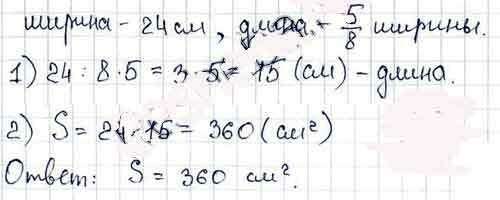 ширина - 24 см, длина - 5/8 ширины.
1) 24 : 8 · 5 = 3 · 5 = 15 (см) - длина.
2) S = 24 · 15 = 360 (см²)
Ответ: S = 360 см².